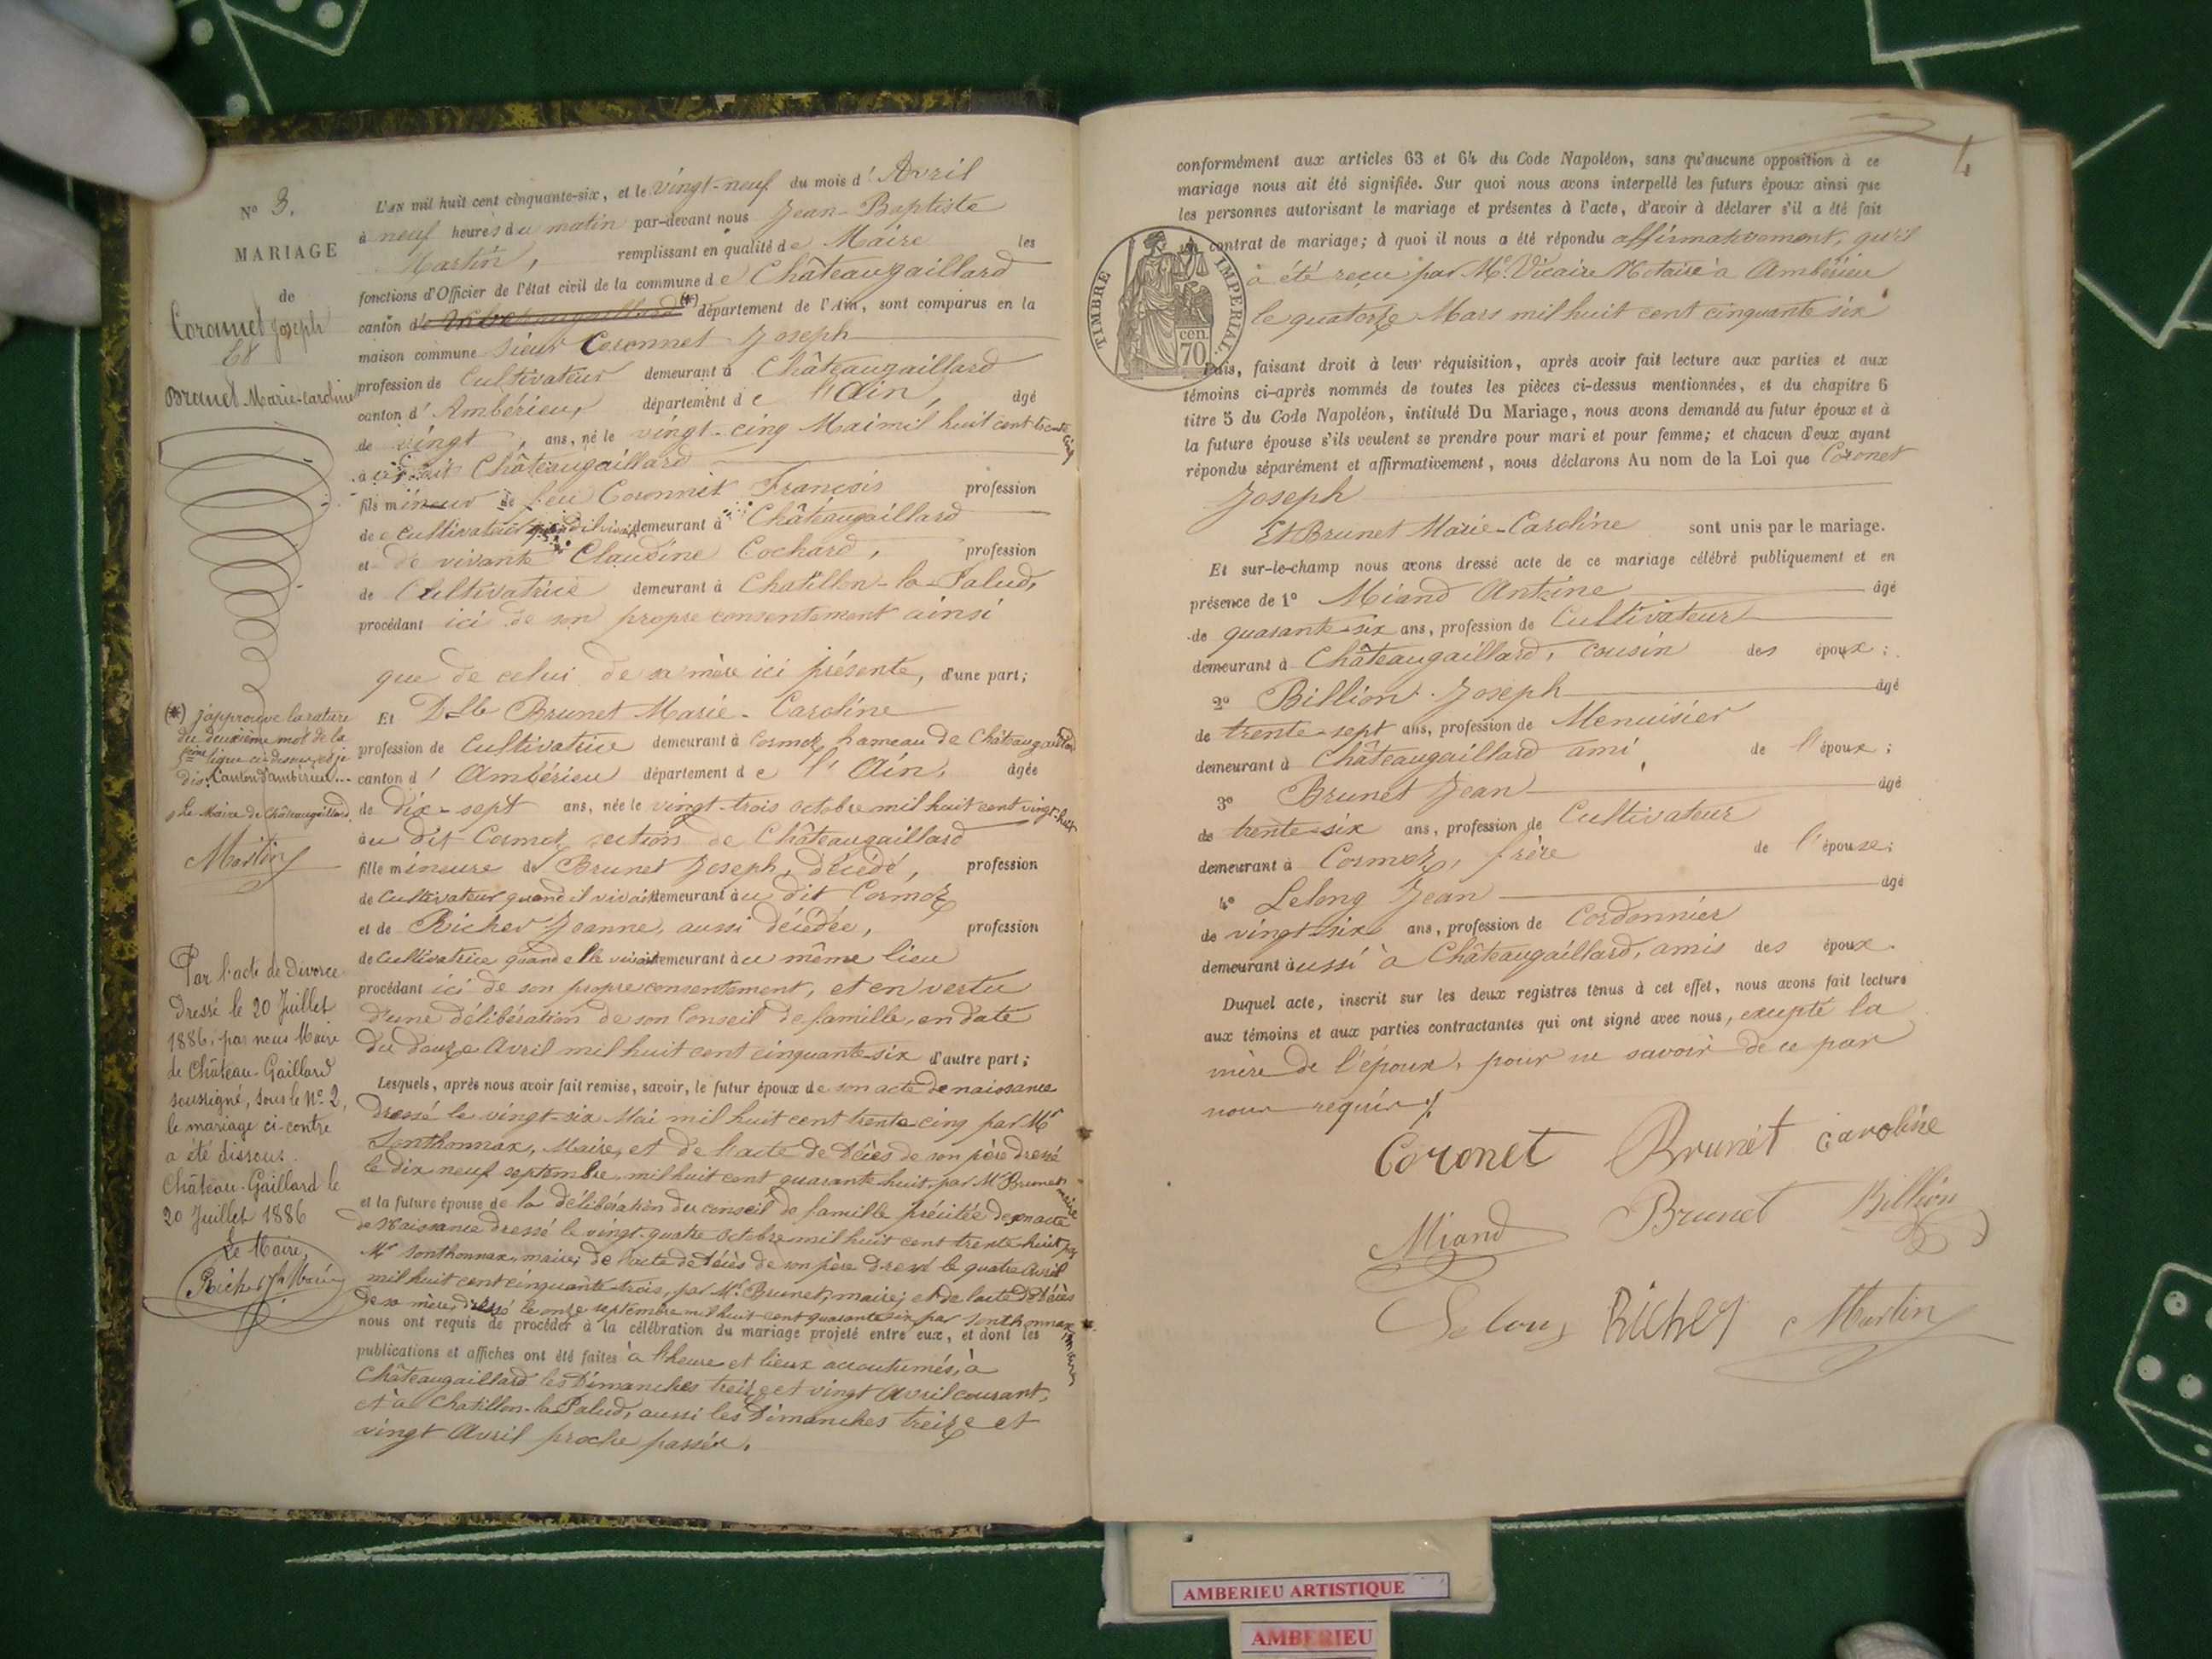 N° 3.
MARIAGE
de
Coronnet Joseph
Et
Brunet Marie-Caroline
(*) J'approuve la rature
du deuxième mot de la
5ème ligne ci-dessus, et je
dis: Canton d'ambérieu...
Le Maire de Châteaugaillard,
Martin
Par l'acte de divorce
dressé le 20 Juillet
1886, par nous Maire
de Château-Gaillard
soussigné, sous le N° 2,
le mariage ci-contre
a été dissous.
Château-Gaillard le
20 Juillet 1886
Le Maire,
L'AN mil huit cent cinquante-six, et le vingt-neuf du mois d'Avril
à neuf heures du matin par-devant nous Jean-Baptiste
Martin, remplissant en qualité de Maire les
fonctions d'Officier de l'état civil de la commune de Châteaugaillard
canton d (*) département de l'Ain, sont comparus en la
maison commune Sieur Coronnet Joseph
profession de Cultivateur demeurant à Châteaugaillard
canton d'Ambérieu, département de l'Ain, âgé
de vingt, ans, né le vingt-cinq Mai mil huit cent trente cinq
à Châteaugaillard
fils mineur de feu Coronnet François profession
de Cultivateur demeurant à Châteaugaillard
et de vivante Claudine Cochard, profession
de Cultivatrice demeurant à Chatillon-la-Palud,
procédant ici de son propre consentement ainsi
que de celui de sa mère ici présente, d'une part;
Et Dlle Brunet Marie-Caroline
profession de Cultivatrice demeurant à Cormoz, hameau de Châteaugaillard
canton d'Ambérieu département de l'Ain, âgée
de dix-sept ans, née le vingt-trois octobre mil huit cent vingt-huit
au dit Cormoz, section de Châteaugaillard
fille mineure de Brunet Joseph, décédé, profession
de Cultivateur quand il vivait demeurant au dit Cormoz
et de Richer Jeanne, aussi décédée, profession
de Cultivatrice quand elle vivait demeurant au même lieu
procédant ici de son propre consentement, et en vertu
d'une délibération de son Conseil de famille, en date
du douze Avril mil huit cent cinquante-six d'autre part;
Lesquels, après nous avoir fait remise, savoir, le futur époux de son acte de naissance
dressé le vingt-six Mai mil huit cent trente cinq par Mr
Sonthonnax, Maire, et de l'acte de décès de son père dressé
le dix neuf septembre mil huit cent quarante huit, par Mr Brunet, maire
et la future épouse de la délibération du conseil de famille précitée de son acte
de Naissance dressé le vingt-quatre octobre mil huit cent trente-huit par
Mr Sonthonnax, maire; de l'acte de décès de son père dressé le quatre avril
mil huit cent cinquante-trois, par Mr Brunet, maire; et de l'acte de décès
de sa mère, dressé le onze septembre mil huit cent quarante six par Sonthonnax
nous ont requis de procéder à la célébration du mariage projeté entre eux, et dont les
publications et affiches ont été faites à l'heure et lieux accoutumés, à
Châteaugaillard les Dimanches treize et vingt avril courant,
et à Chatillon-la-Palud, aussi les Dimanches treize et
vingt Avril proche passés.
4
conformément aux articles 63 et 64 du Code Napoléon, sans qu'aucune opposition à ce
mariage nous ait été signifiée. Sur quoi nous avons interpellé les futurs époux ainsi que
les personnes autorisant le mariage et présentes à l'acte, d'avoir à déclarer s'il a été fait
un contrat de mariage; à quoi il nous a été répondu affirmativement, qu'il
à été reçu par Me Vicaire Notaire à Ambérieu
le quatorze Mars mil huit cent cinquante six
TIMBRE IMPERIAL.
70 cen.
Puis, faisant droit à leur réquisition, après avoir fait lecture aux parties et aux
témoins ci-après nommés de toutes les pièces ci-dessus mentionnées, et du chapitre 6
titre 5 du Code Napoléon, intitulé Du Mariage, nous avons demandé au futur époux et à
la future épouse s'ils veulent se prendre pour mari et pour femme; et chacun d'eux ayant
répondu séparément et affirmativement, nous déclarons Au nom de la Loi que Coronet
Joseph
Et Brunet Marie-Caroline sont unis par le mariage.
Et sur-le-champ nous avons dressé acte de ce mariage célébré publiquement et en
présence de 1° Miand Antoine âgé
de quarante-six ans, profession de Cultivateur
demeurant à Châteaugaillard, cousin des époux;
2° Billion Joseph âgé
de trente-sept ans, profession de Menuisier
demeurant à Châteaugaillard ami de l'époux;
3° Brunet Jean âgé
de trente-six ans, profession de Cultivateur
demeurant à Cormoz, frère de l'épouse;
4° Lelong Jean âgé
de vingt-six ans, profession de Cordonnier
demeurant aussi à Châteaugaillard, amis des époux.
Duquel acte, inscrit sur les deux registres tenus à cet effet, nous avons fait lecture
aux témoins et aux parties contractantes qui ont signé avec nous, excepté la
mère de l'époux, pour ne savoir de ce par
nous requis./.
Coronet Brunet Caroline
Miand Brunet Billion
Lelong Richer Martin
AMBERIEU ARTISTIQUE
AMBERIEU